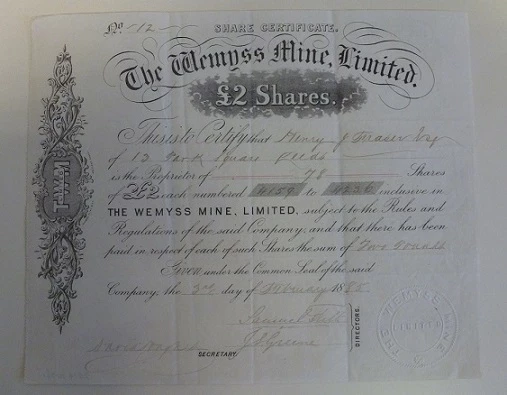 No. 12
SHARE CERTIFICATE.
The Wemyss Mine, Limited.
£2 Shares.
This is to Certify that Henry J Fraser Esq
of 13 Park Square Leeds
is the Proprietor of 78 Shares
of £2 each numbered 4159 to 4236 inclusive in
THE WEMYSS MINE, LIMITED, subject to the Rules and
Regulations of the said Company, and that there has been
paid in respect of each of such Shares the sum of Two Pounds
Given under the Common Seal of the said
Company, the 3rd day of February 188
Samuel
DIRECTORS.
SECRETARY.
THE WEMYSS MINE
LIMITED